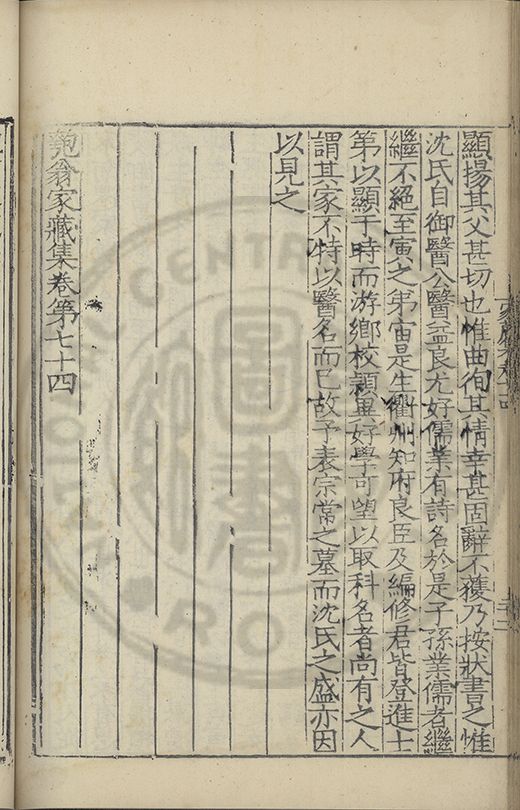 顯揚其父甚切也惟曲徇其情幸甚固辭不獲乃按狀書之惟
沈氏自御醫公醫益良尤好儒業有詩名於是子孫業儒者繼
繼不絕至寅之弟宙是生衢州知府良臣及編修君皆登進士
第以顯于時而游鄉校穎異好學可望以取科名者尚有之人
謂其家不特以醫名而已故予表宗常之墓而沈氏之盛亦因
以見之
匏翁家藏集卷第七十四